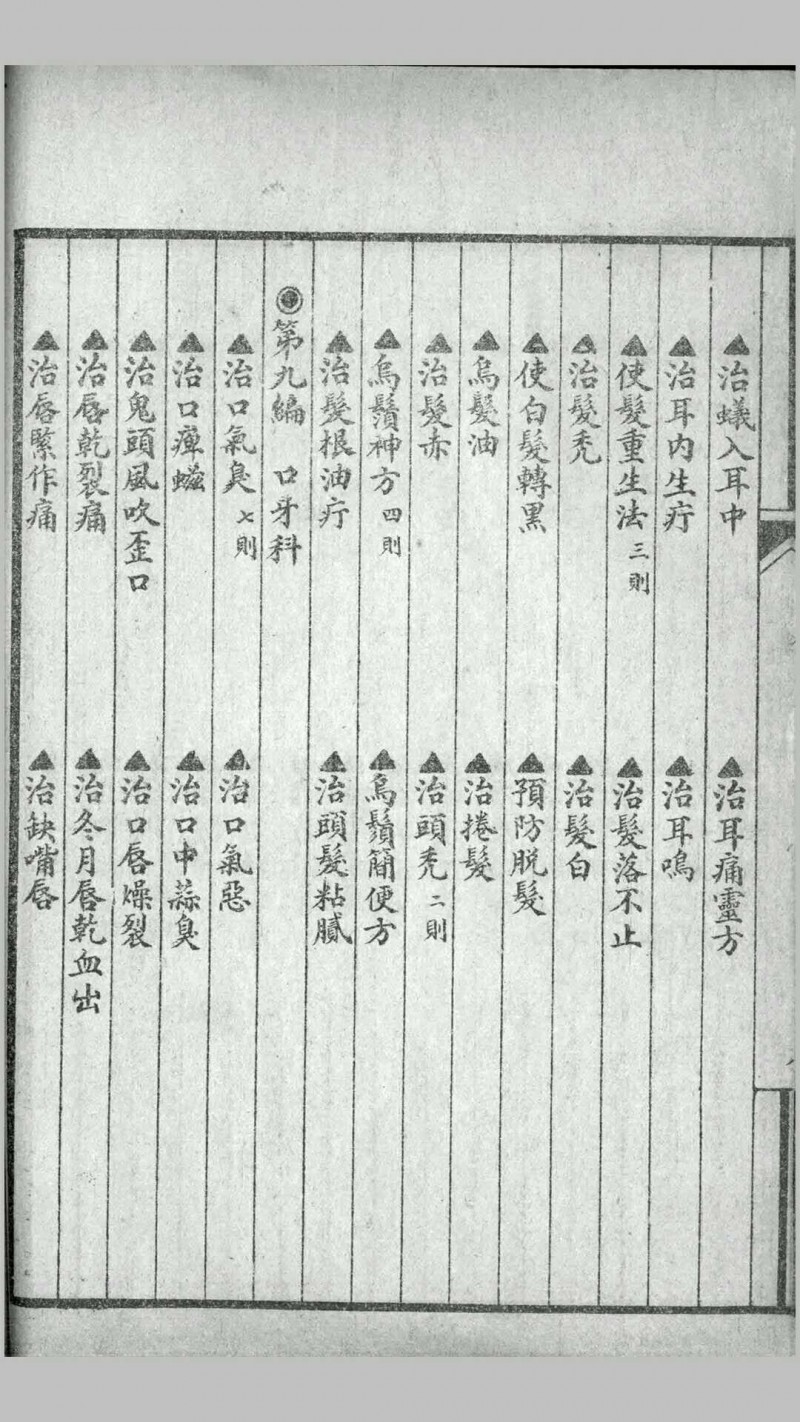 ▲治蟻入耳中 ▲治耳痛靈方
▲治耳内生疔 ▲治耳鳴
▲使髮重生法 三則 ▲治髮落不止
▲治髮秃 ▲治髮白
▲使白髮轉黑 預防脱髮
▲烏髮油 ▲治捲髮
▲治髮赤 ▲治頭秃 二則
▲烏鬚神方 四則 ▲烏鬚簡便方
▲治髮根油疔 ▲治頭髮粘膩
◉第九編 口牙科
▲治口氣臭 七則 ▲治口氣惡
▲治口瘅 ▲治口中蒜臭
▲治鬼頭風吹歪口 ▲治口唇燥裂
▲治唇乾裂痛 ▲治冬月唇乾血出
▲治唇緊作痛 ▲治缺嘴唇